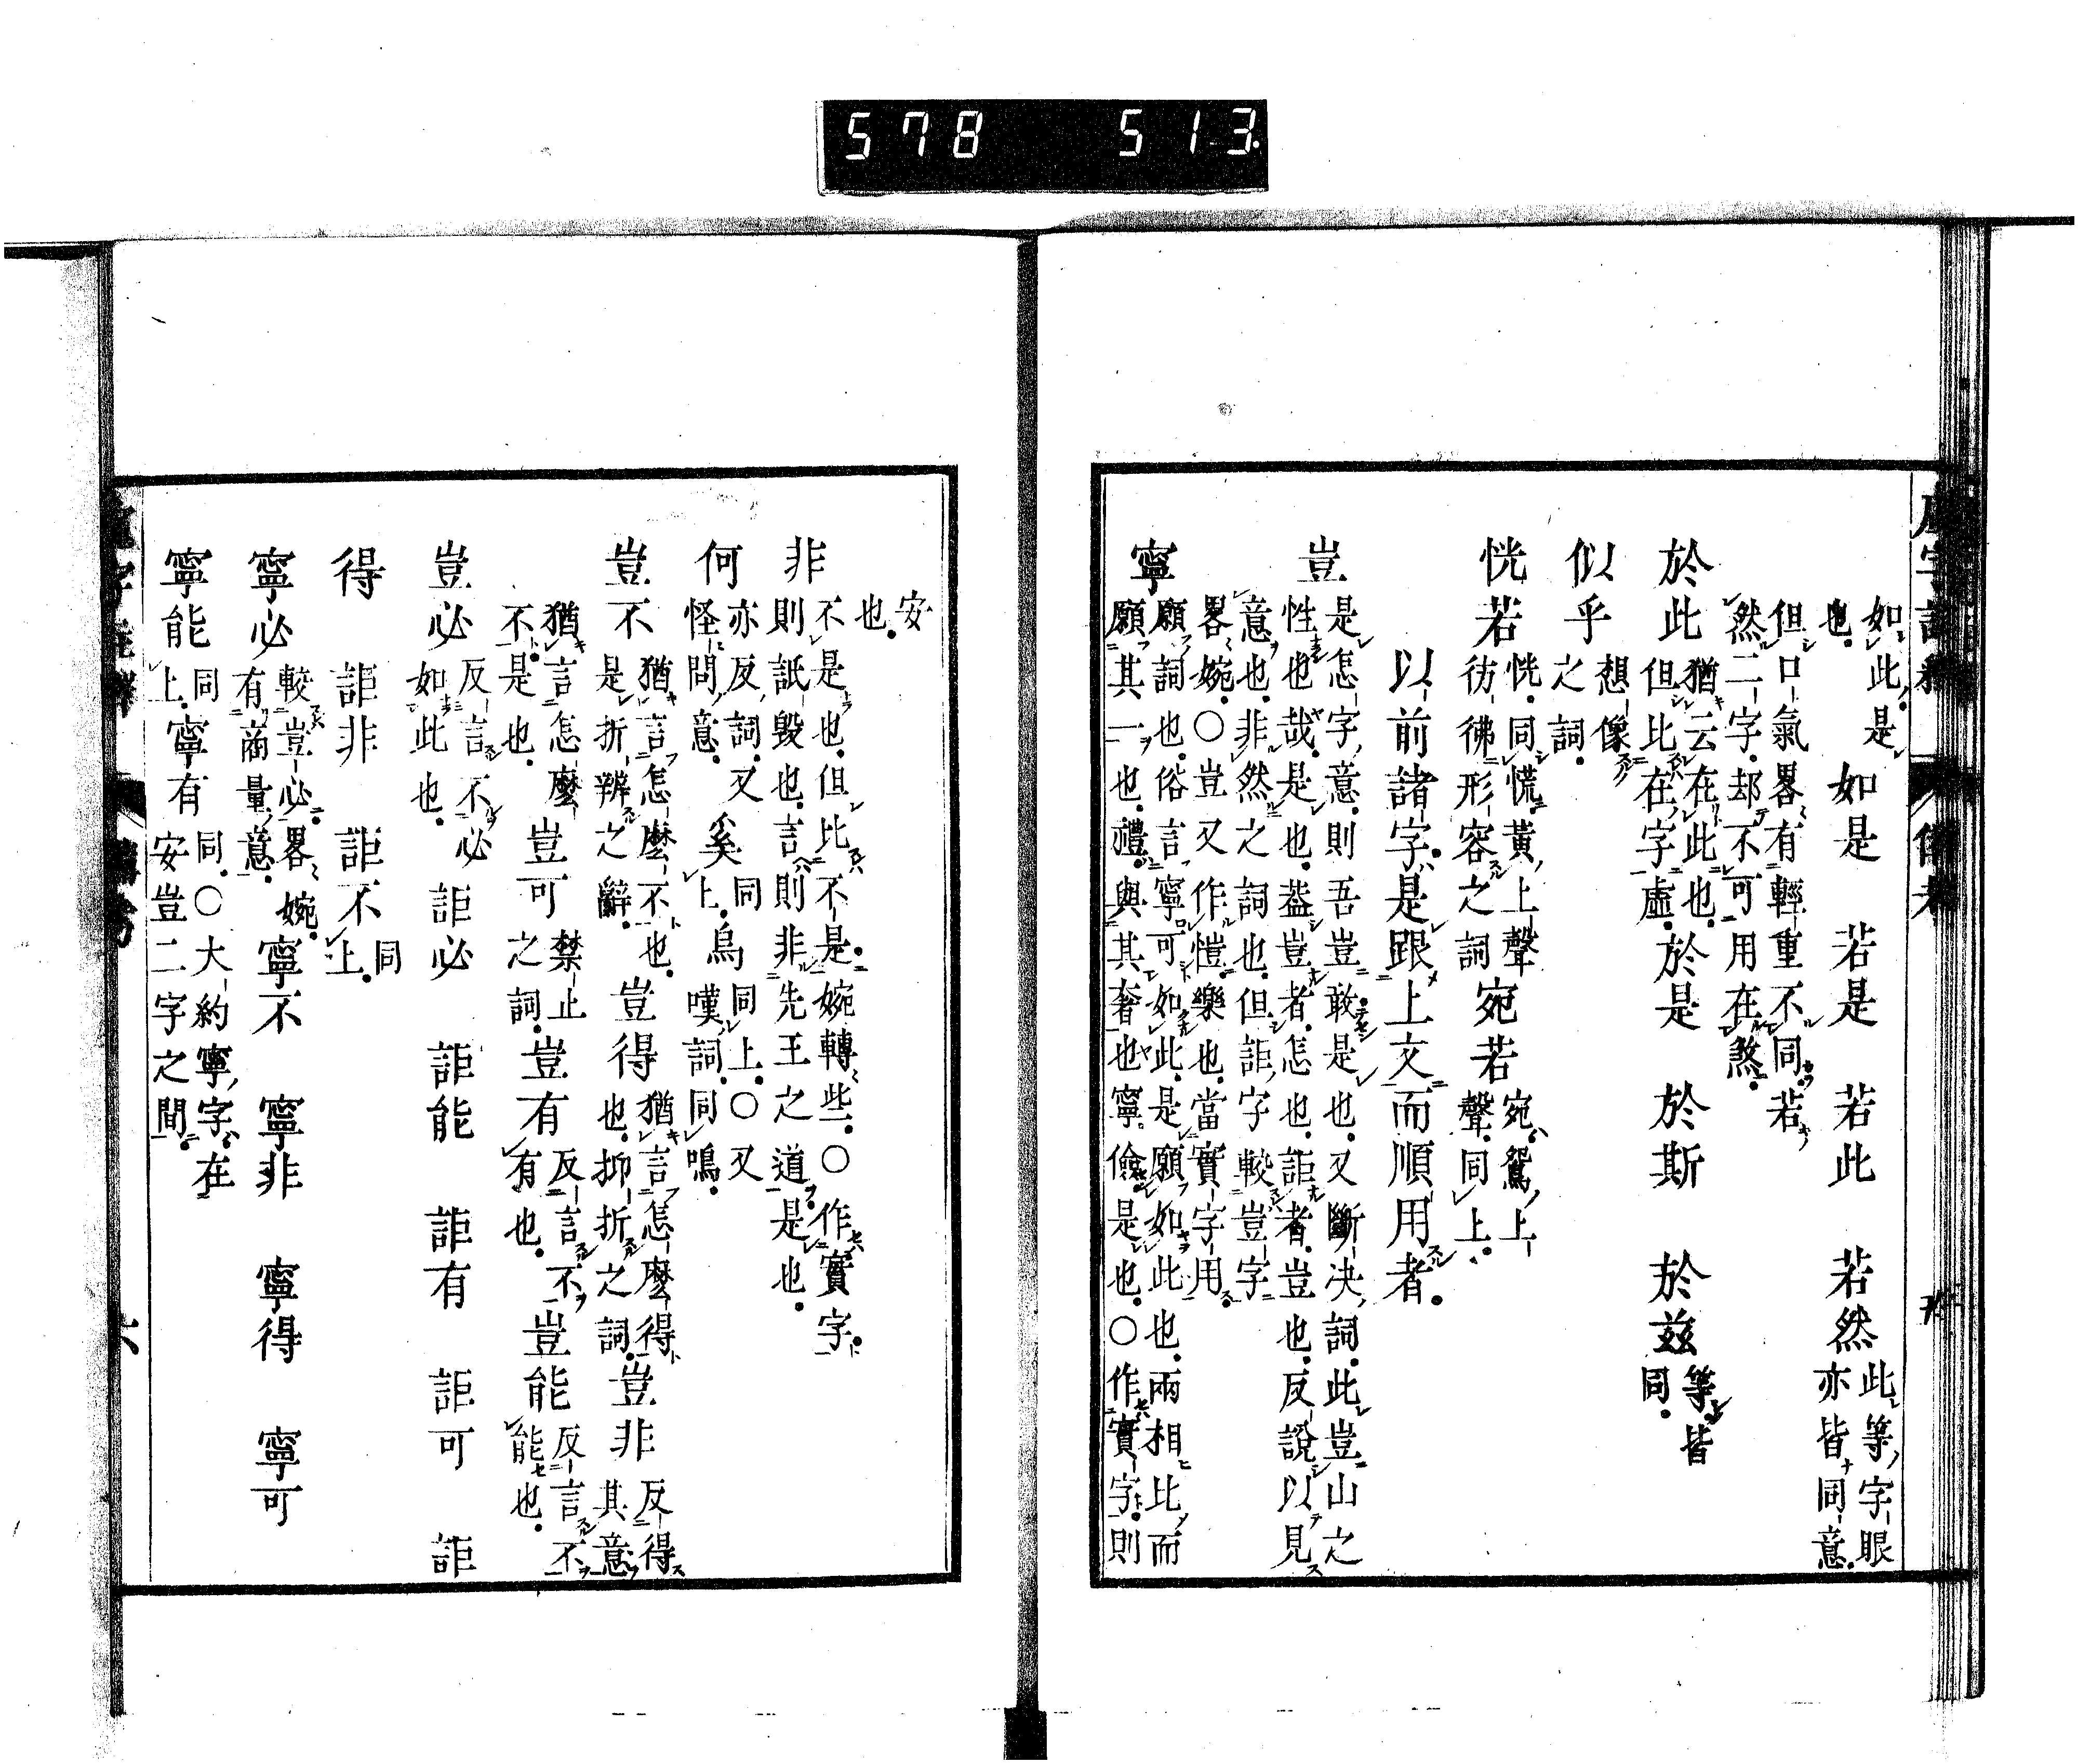 578 513
如此是也 如是 若是 若此 若然 此等字眼亦皆同意
但口氣畧有輕重不同若然二字却不可用在煞
於此 猶云在此也但比在字虛 於是 於斯 於茲 等皆同
似乎 想像之詞
恍若 恍同慌黃上聲彷彿形容之詞 宛若 宛鴛上聲同上
以前諸字是跟上文而順用者
豈 是怎字意則吾豈敢是也又斷决詞此豈山之性也哉是也蓋豈者怎也詎者豈也反說以見
意也非然之詞也但詎字較豈字畧婉○豈又作愷樂也當實字用
寧 願詞也俗言寧可如此是願如此也兩相比而願其一也禮與其奢也寧儉是也○作實字則
安也
非 不是也但比不是婉轉些○作實字則詆毀也言則非先王之道是也
何 亦反詞又怪問意 奚 同上 烏 同上○又嘆詞同嗚
豈不 猶言怎麼不也是折辨之辭 豈得 猶言怎麼得也抑折之詞 豈非 反得其意
猶言怎麼不是也 豈可 禁止之詞 豈有 反言不有也 豈能 反言不能也
豈必 反言不必如此也 詎必 詎能 詎有 詎可 詎
得 詎非 詎不 同上
寧必 較豈必畧婉有商量意 寧不 寧非 寧得 寧可
寧能 同上 寧有 同○大約寧字在安豈二字之間
六